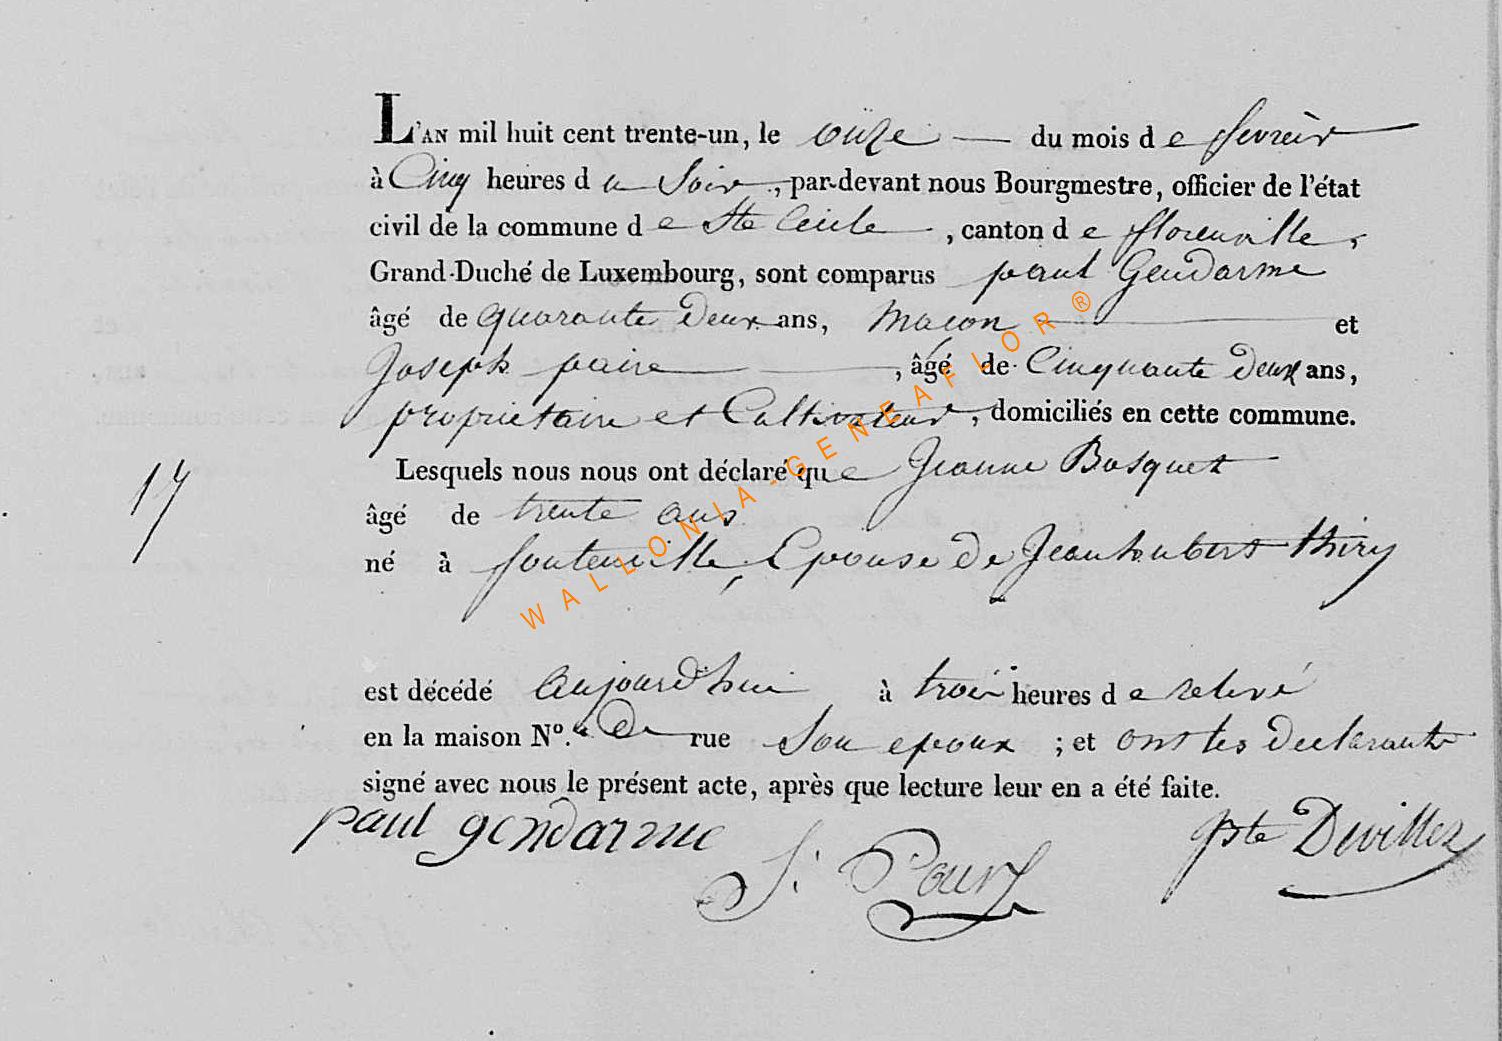 L'AN mil huit cent trente-un, le onze du mois de fevrier
à Cinq heures du Soir, par-devant nous Bourgmestre, officier de l'état
civil de la commune de Ste Cécile, canton de florenville,
Grand-Duché de Luxembourg, sont comparus paul Gendarme
âgé de quarante deux ans, Maçon et
Joseph paire, âgé de Cinquante deux ans,
propriétaire et Cultivateur, domiciliés en cette commune.
Lesquels nous nous ont déclaré que Jeanne Bosquet
17
âgé de trente ans
né à fontenille, Epouse de Jean hubert thiry
est décédé aujourd'hui à trois heures de relevé
en la maison N°. de rue Son epoux ; et ont les declarants
signé avec nous le présent acte, après que lecture leur en a été faite.
paul gendarme
J: Devillez
WALLONIA-GENEAFLOR®